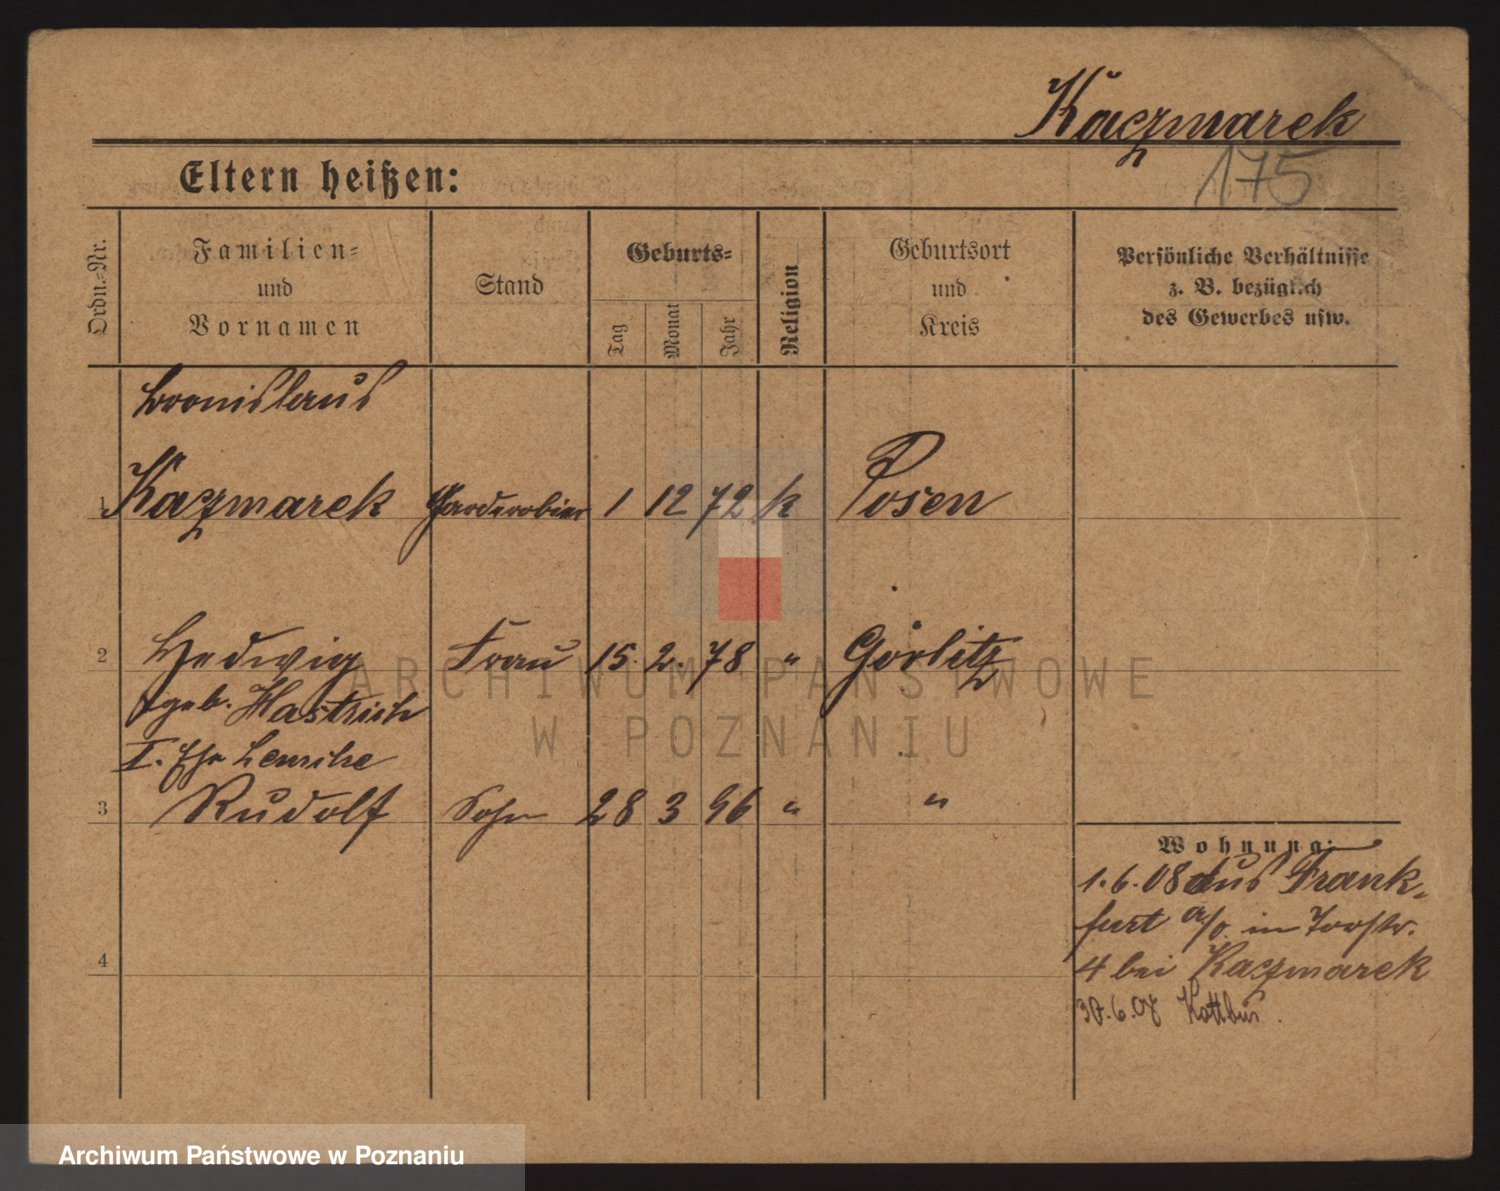 Kaczmarek
175
Eltern heißen:
Ordn.-Nr.
Familien-
und
Vornamen
Stand
Geburts-
Tag
Monat
Jahr
Religion
Geburtsort
und
Kreis
Persönliche Verhältnisse
z. B. bezüglich
des Gewerbes usw.
Bronislaus
1 Kaczmarek Garderobier 1 12 72 k Posen
2 Hedwig Frau 15. 2. 78 " Görlitz
geb.
I. Ehe
3 Rudolf Sohn 28 3 96 " "
Wohnung:
1.6.08 aus Frank-
furt a/o. in Torstr.
4 bei Kaczmarek
30.6.08 Kottbus.
4
ARCHIWUM PAŃSTWOWE
W POZNANIU
Archiwum Państwowe w Poznaniu